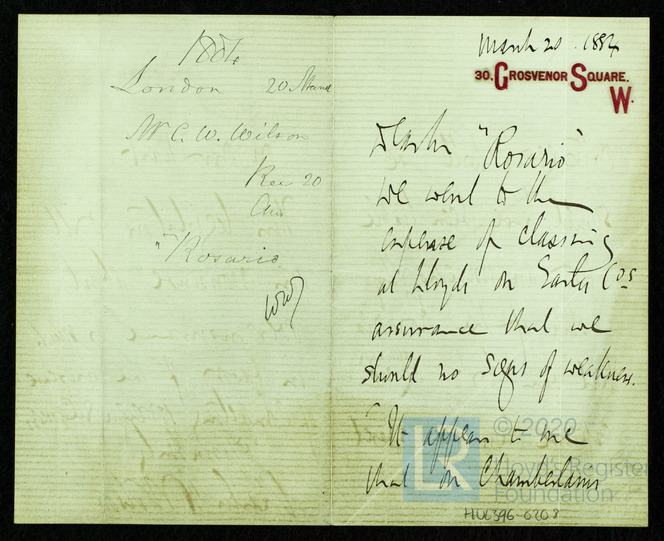 1884
London 20 March
Mr C. W. Wilson
Rec 20
Ans
"Rosario"
March 20 . 1884
30, GROSVENOR SQUARE.
W.
"Rosario"
We went to the
expense of classing
at Lloyds on Earles Cos
assurance that we
should no signs of weakness.
It appears to me
that on Chamberlains
© 2020
LR
Lloyd's Register
Foundation
HUL396-0208